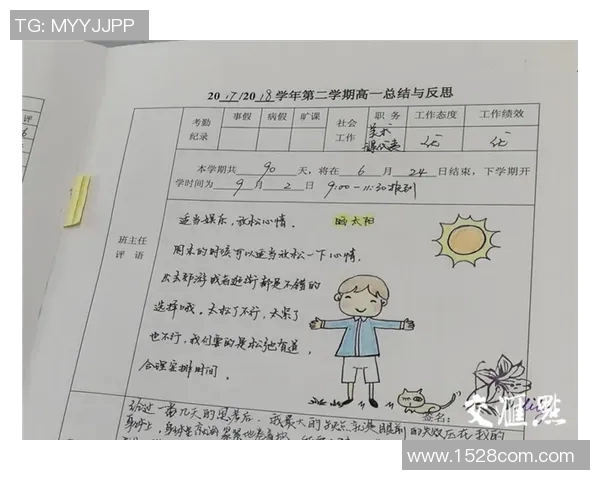 TG: MYYJJPP
2017/2018学年第二学期高一总结与反思
考勤纪录 事假 病假 旷课 社会工作 职务 工作态度 工作绩效
美术课代表 优 优
本学期共 90 天，将在 6 月 24 日结束，下学期开
学时间为 9 月 2 日 9:00-11:30报到
班主任评语
适当娱乐，放松心情。 晒太阳
周末的时候可以适当放松一下心情，
出去郊游或者逛街都是不错的
选择哦。太松了不行，太紧了
也不行，我们要的是松弛有道，
合理安排时间。
签名：
交汇点
www.1528com.com